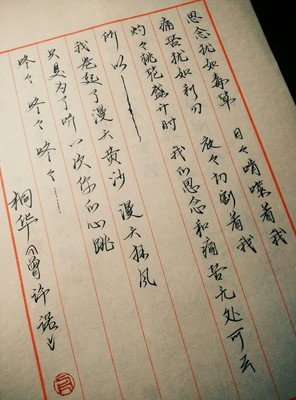 思念犹如毒虫 日々啃噬着我
痛苦犹如利刃 夜々切割着我
灼々桃花盛开时 我的思念和痛苦无处可去
所以——
我卷起了漫天黄沙 漫天狂风
只是为了听一次你的心跳
咚々 咚々 咚々……
桐华《曾许诺》